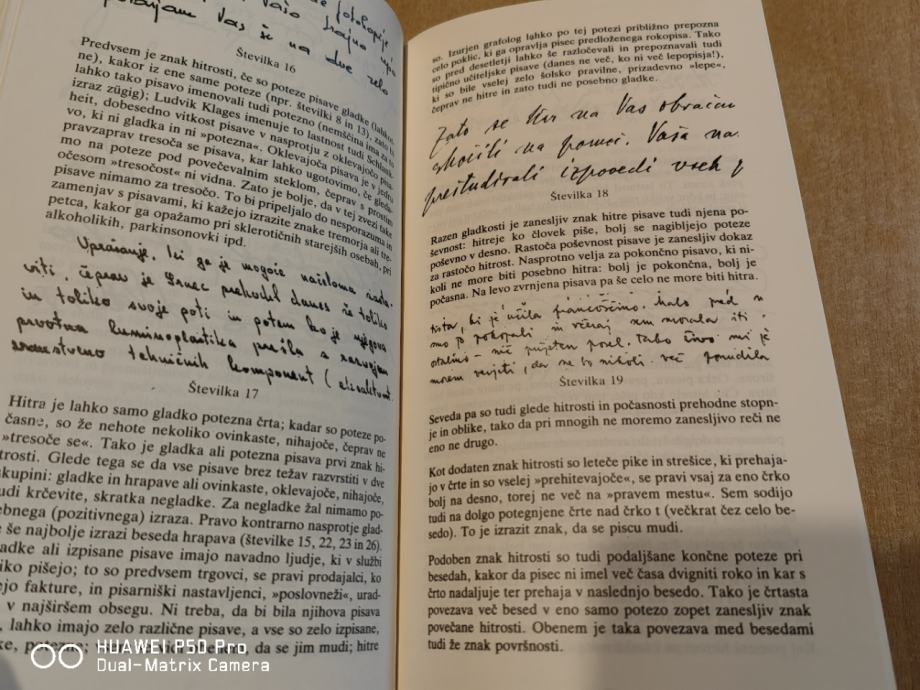 Vas še na dve zelo
Številka 16
Predvsem je znak hitrosti, če so poteze pisave gladke (lahko
ne), kakor iz ene same poteze (npr. številki 8 in 13), zato bi
lahko tako pisavo imenovali tudi potezno (nemščina ima za to
izraz zügig); Ludvik Klages imenuje to lastnost tudi Schlank-
heit, dobesedno vitkost pisave v nasprotju z oklevajočo pisa-
vo, ki ni gladka in ni »potezna«. Oklevajoča pisava je v jedru
pravzaprav tresoča se pisava, kar lahko ugotovimo, če gleda-
mo na poteze pod povečevalnim steklom, čeprav s prostim
očesom »tresočost« ni vidna. Zato je bolje, da v tej zvezi take
pisave nimamo za tresočo. To bi pripeljalo do nesporazuma in
zamenjav s pisavami, ki kažejo izrazite znake tremorja ali tre-
petca, kakor ga opažamo pri sklerotičnih starejših osebah, pri
alkoholikih, parkinsonovki ipd.
Vprašanje, ki ga je mogoče načeloma zasta-
viti, čeprav je Srnec prehodil danes že toliko
in toliko svoje poti in potem ko je njegova
prvotna luminoplastika prešla z razvojem
sredstveno tehničnih komponent (
Številka 17
Hitra je lahko samo gladko potezna črta; kadar so poteze po-
časne, so že nehote nekoliko ovinkaste, nihajoče, čeprav ne
»tresoče se«. Tako je gladka ali potezna pisava prvi znak hi-
trosti. Glede tega se da vse pisave brez težav razvrstiti v dve
skupini: gladke in hrapave ali ovinkaste, oklevajoče, nihajoče,
udi krčevite, skratka negladke. Za negladke žal nimamo po-
ebnega (pozitivnega) izraza. Pravo kontrarno nasprotje glad-
e še najbolje izrazi beseda hrapava (številke 15, 22, 23 in 26).
adke ali izpisane pisave imajo navadno ljudje, ki v službi
liko pišejo; to so predvsem trgovci, se pravi prodajalci, ko
ejo fakture, in pisarniški nastavljenci, »poslovneži«, urad-
v najširšem obsegu. Ni treba, da bi bila njihova pisava
, lahko imajo zelo različne pisave, a vse so zelo izpisane,
ke, potezne; da se jim mudi; hitre
so. Izurjen grafolog lahko po tej potezi približno prepozna
celo poklic, ki ga opravlja pisec predloženega rokopisa. Tako
so pred desetletji lahko še razločevali in prepoznavali tudi
tipično učiteljske pisave (danes ne več, ko ni več lepopisja!),
ki so bile vselej zelo šolsko pravilne, prizadevno »lepe«,
čeprav ne hitre in zato tudi ne posebno gladke.
Zato se na Vas obračam
skočili na pomoč. Vaša na
preštudirali izpovedi vseh
Številka 18
Razen gladkosti je zanesljiv znak hitre pisave tudi njena po-
ševnost: hitreje ko človek piše, bolj se nagibljejo poteze
poševno v desno. Rastoča poševnost pisave je zanesljiv dokaz
za rastočo hitrost. Nasprotno velja za pokončno pisavo, ki ni-
koli ne more biti posebno hitra: bolj je pokončna, bolj je
počasna. Na levo zvrnjena pisava pa še celo ne more biti hitra.
tista, ki je učila francoščino. malo pred
smo jo pokopali in včeraj sem morala iti
ostalimi – nič prijeten posel. tako živo mi je
morem verjeti, da ne bo nikoli več ponudila
Številka 19
Seveda pa so tudi glede hitrosti in počasnosti prehodne stopn-
je in oblike, tako da pri mnogih ne moremo zanesljivo reči ne
eno ne drugo.
Kot dodaten znak hitrosti so leteče pike in strešice, ki prehaja-
jo v črte in so vselej »prehitevajoče«, se pravi vsaj za eno črko
bolj na desno, torej ne več na »pravem mestu«. Sem sodijo
tudi na dolgo potegnjene črte nad črko t (večkrat čez celo be-
sedo). To je izrazit znak, da se piscu mudi.
Podoben znak hitrosti so tudi podaljšane končne poteze pri
besedah, kakor da pisec ni imel več časa dvigniti roko in kar s
črto nadaljuje ter prehaja v naslednjo besedo. Tako je črtasta
povezava več besed v eno samo potezo zopet zanesljiv znak
povečane hitrosti. Obenem je taka povezava med besedami
tudi že znak površnosti.
HUAWEI P50 Pro
Dual-Matrix Camera